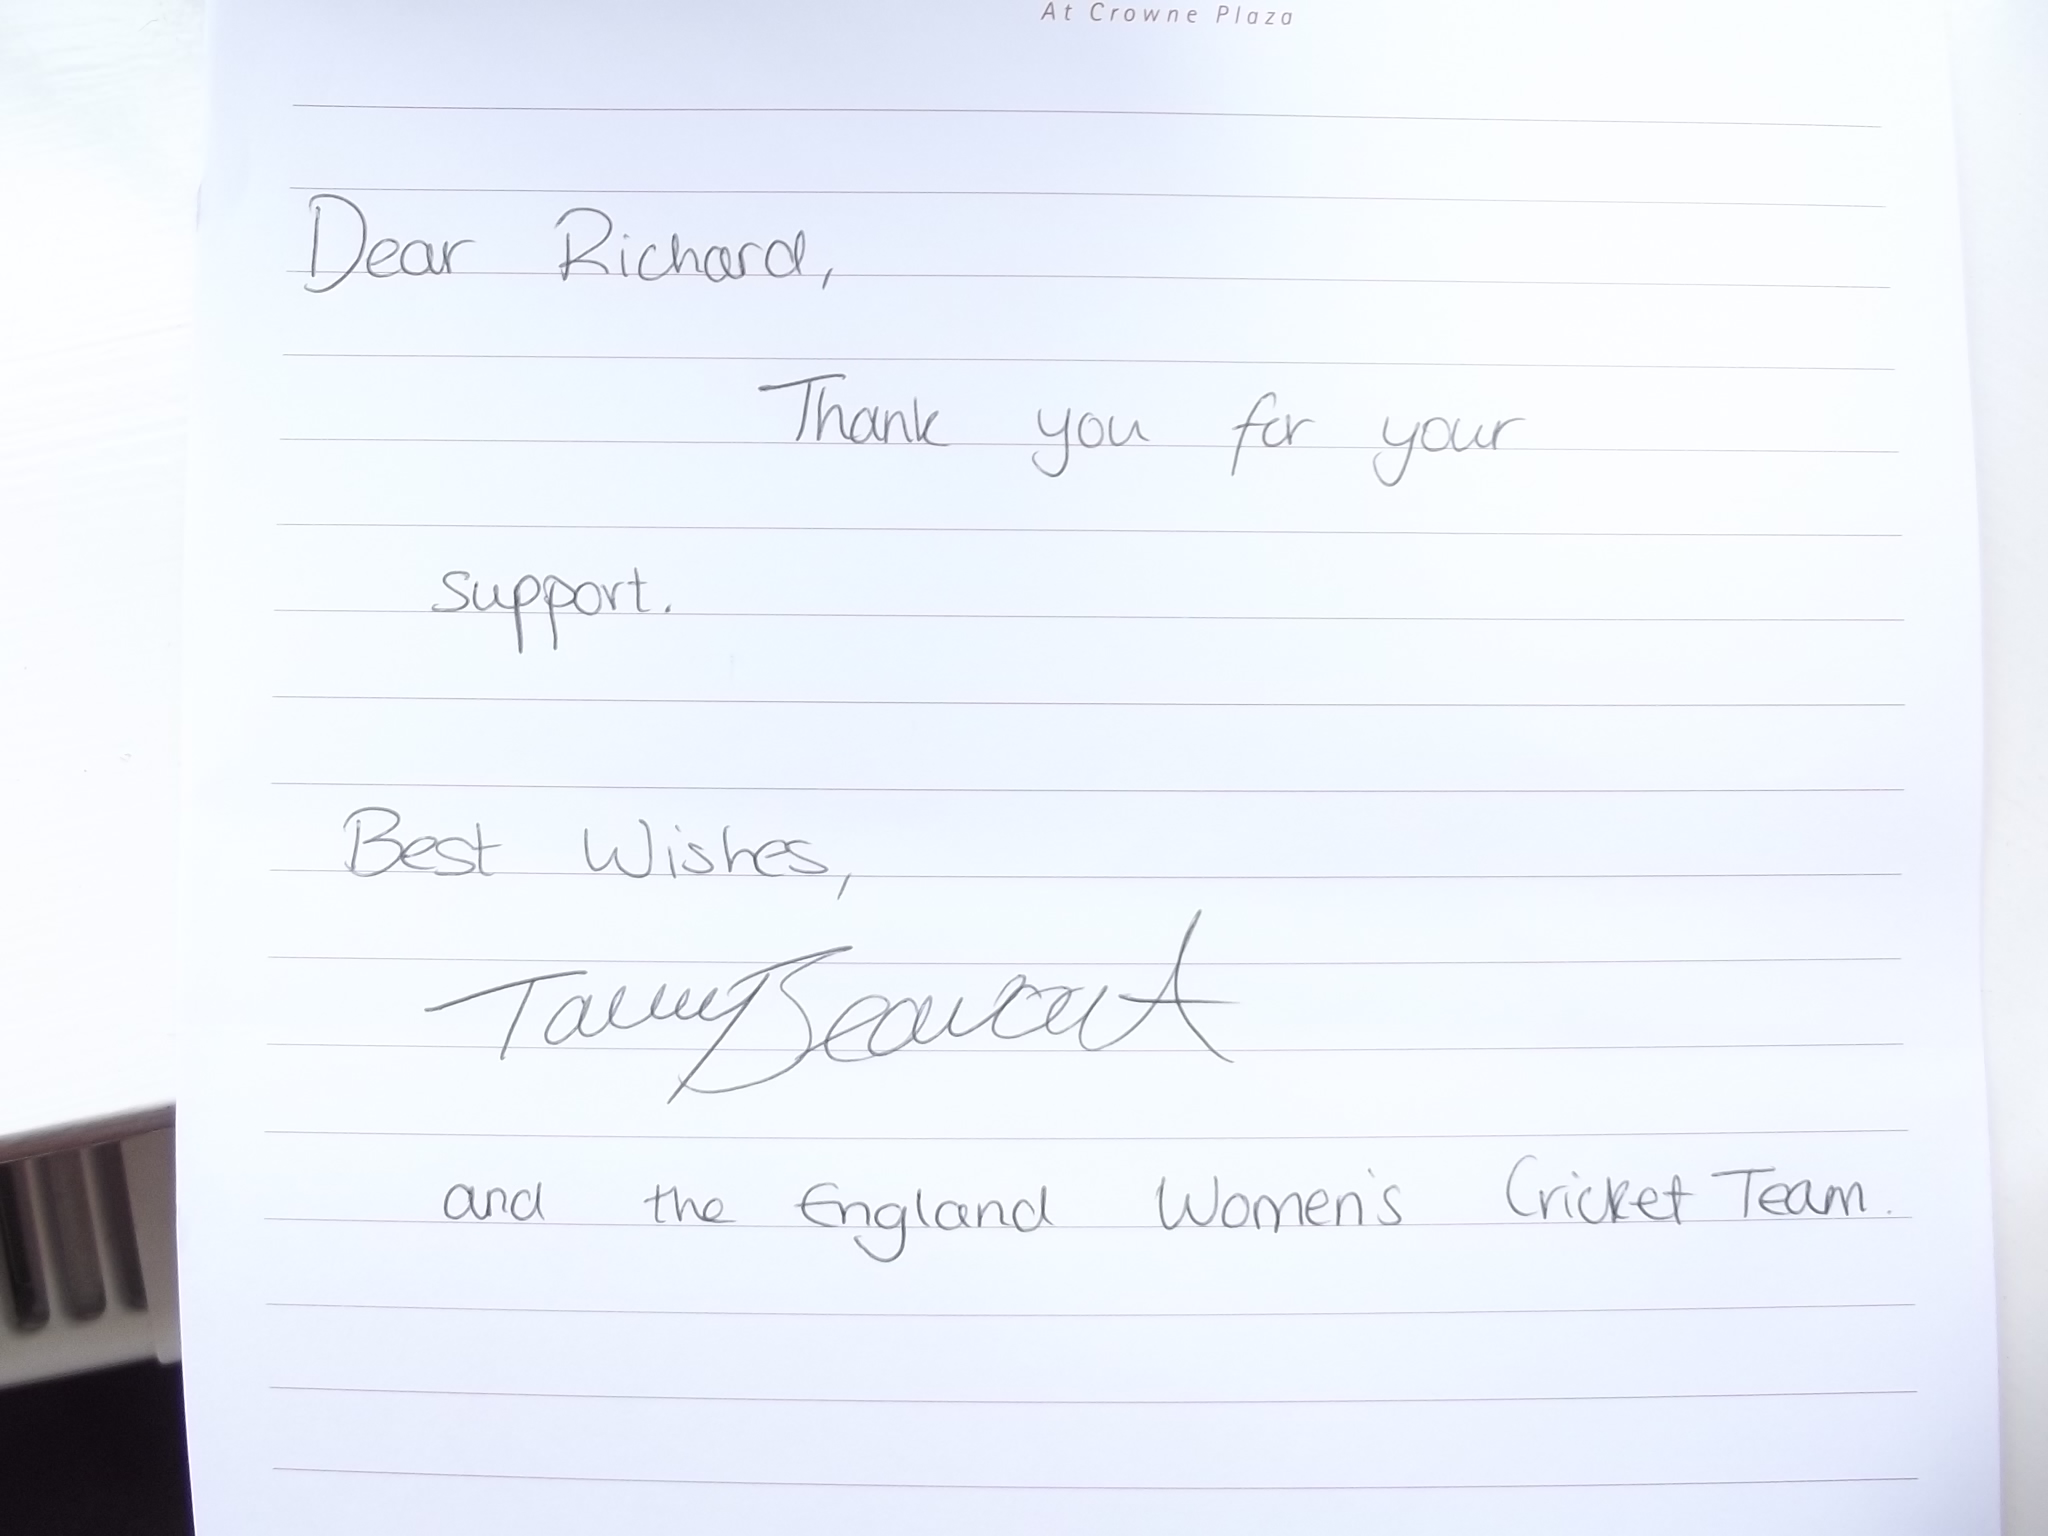 At Crowne Plaza
Dear Richard,
Thank you for your
support.
Best Wishes,
Tammy Beaumont
and the England Women's Cricket Team.